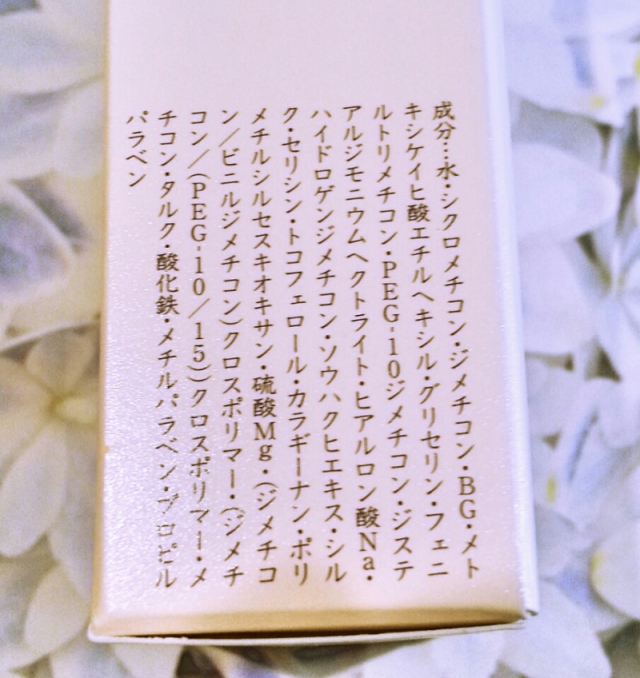 成分…水・シクロメチコン・ジメチコン・BG・メト
キシケイヒ酸エチルヘキシル・グリセリン・フェニ
ルトリメチコン・PEG-10ジメチコン・ジステ
アルジモニウムヘクトライト・ヒアルロン酸Na・
ハイドロゲンジメチコン・ソウハクヒエキス・シル
ク・セリシン・トコフェロール・カラギーナン・ポリ
メチルシルセスキオキサン・硫酸Mg・(ジメチコ
ン/ビニルジメチコン)クロスポリマー・(ジメチ
コン/(PEG-10/15))クロスポリマー・メ
チコン・タルク・酸化鉄・メチルパラベン・プロピル
パラベン